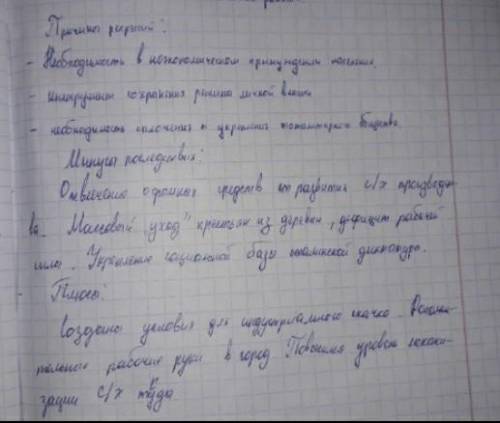 Причины репрессий:
- Необходимость в неэкономическом принуждении населения.
- инструмент сохранения режима личной власти
- необходимость сплочения и укрепления тоталитарного общества.
Минусы последствий:
Отвлечение огромных средств от развития с/х производст
ва. Массовый "уход" крестьян из деревни, дефицит рабочей
силы. Укрепление социальной базы сталинской диктатуры.
- Плюсы:
Созданы условия для индустриального скачка. Дополни
тельные рабочие руки в город. Повысился уровень механи-
зации с/х труда.